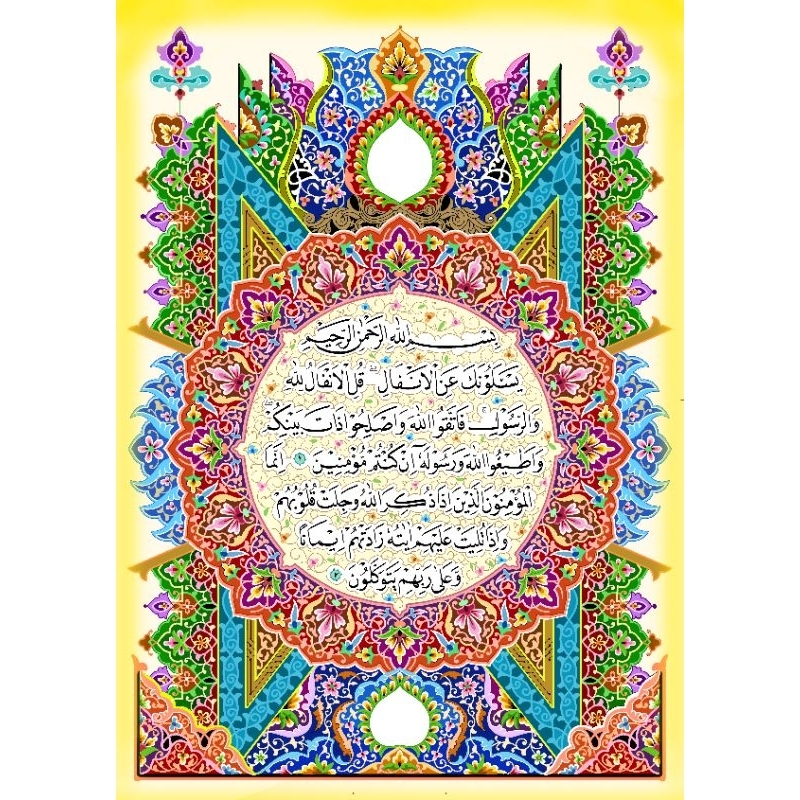 بِسْمِ اللهِ الرَّحْمٰنِ الرَّحِيْمِ
يَسْـَٔلُوْنَكَ عَنِ الْاَنْفَالِۗ قُلِ الْاَنْفَالُ لِلّٰهِ
وَالرَّسُوْلِۚ فَاتَّقُوا اللهَ وَاَصْلِحُوْا ذَاتَ بَيْنِكُمْۖ
وَاَطِيْعُوا اللهَ وَرَسُوْلَهٗٓ اِنْ كُنْتُمْ مُّؤْمِنِيْنَ ۝١ اِنَّمَا
الْمُؤْمِنُوْنَ الَّذِيْنَ اِذَا ذُكِرَ اللهُ وَجِلَتْ قُلُوْبُهُمْ
وَاِذَا تُلِيَتْ عَلَيْهِمْ اٰيٰتُهٗ زَادَتْهُمْ اِيْمَانًا
وَّعَلٰى رَبِّهِمْ يَتَوَكَّلُوْنَ ۝٢